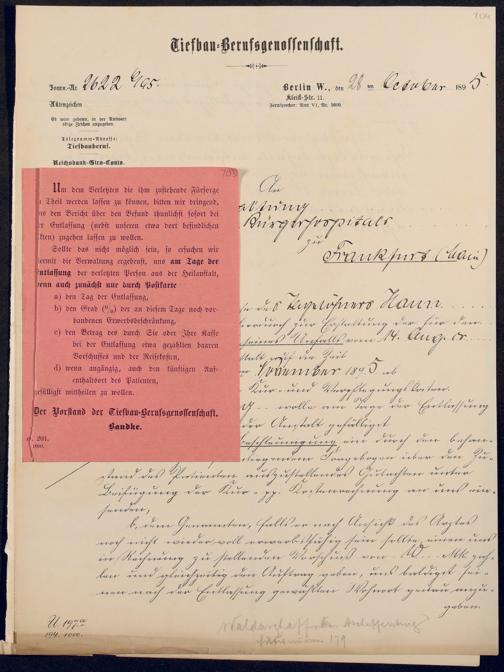 Tiefbau-Berufsgenossenschaft.
Journ.-Nr. 2622 C/95.
Berlin W., den 28 ten October 1895.
Kleist-Str. 11.
Fernsprecher: Amt VI, Nr.
Aktenzeichen
Es wird gebeten, in der Antwort
obige Zeichen anzugeben.
Telegramm-Adresse:
Tiefbauberuf.
Reichsbank-Giro-Conto.
Um dem Verletzten die ihm zustehende Fürsorge
Theil werden lassen zu können, bitten wir dringend,
den Bericht über den Befund thunlichst sofort bei
Entlassung (nebst unseren etwa dort befindlichen
Akten) zugehen lassen zu wollen.
Sollte das nicht möglich sein, so ersuchen wir
die Verwaltung ergebenst, uns am Tage der
Entlassung der verletzten Person aus der Heilanstalt,
wenn auch zunächst nur durch Postkarte
a) den Tag der Entlassung,
b) den Grad (%) der an diesem Tage noch vor-
handenen Erwerbsbeschränkung,
c) den Betrag des durch Sie oder Ihre Kasse
bei der Entlassung etwa gezahlten baaren
Vorschusses und der Reisekosten,
d) wenn angängig, auch den künftigen Auf-
enthaltsort des Patienten,
gefälligst mittheilen zu wollen.
Der Vorstand der Tiefbau-Berufsgenossenschaft.
Bandke.
201.
An
Bürgerhospitals
zu
Frankfurt (Main)
des Tagelöhners Hann
zur Erstattung der für den
seines Unfalls vom 14. Aug. cr.
auf die Zeit
November 1895 ab
Kur- und Verpflegungskosten.
wolle am Tage der Entlassung
der Anstalt gefälligst
Beschleunigung ein durch den
Fragebogen über den Zu-
stand des Patienten auszustellendes Gutachten unter
Beifügung der Kur- pp. Kostenrechnung an uns ein-
senden,
b, dem Genannten, falls er nach Ansicht des Arztes
noch nicht wieder voll erwerbsfähig sein sollte, einen uns
in Rechnung zu stellenden Vorschuss von 10 Mk. zah-
len und gleichzeitig den Auftrag geben, uns baldigst sei-
nen nach der Entlassung gewählten Wohnort genau anzu-
geben.
U 197
194. 1000.